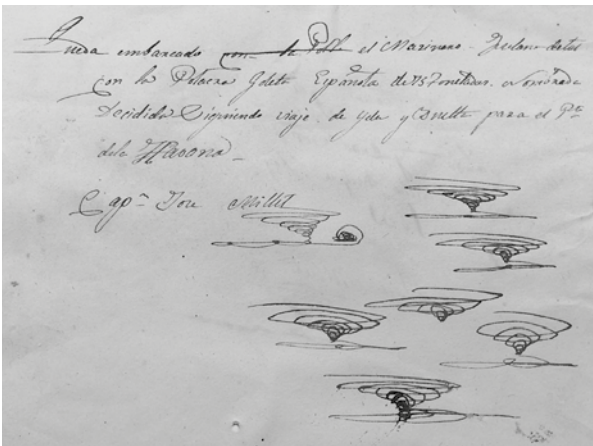 Queda embarcado con la Polla el Marinero Fulano de tal
con la Polacra Goleta Española de 157 oneladas. Nominada
Decidida Siguiendo viaje de Yda y Buelta para el Pto
dela Havana
Capn Jose Millet